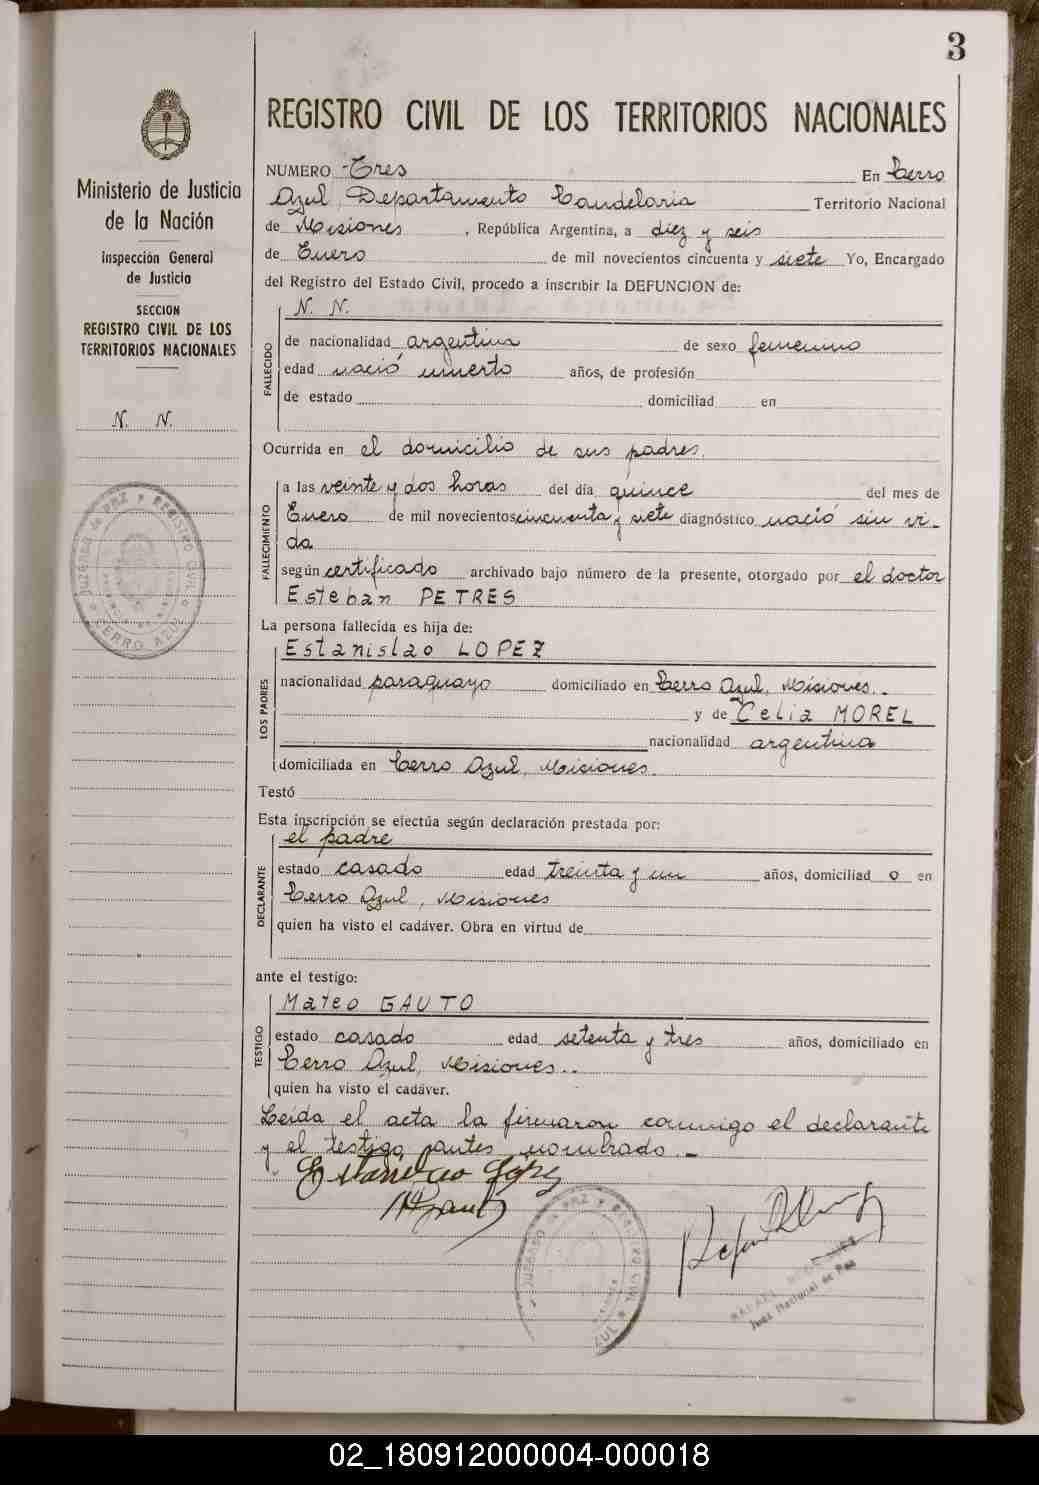 3
REGISTRO CIVIL DE LOS TERRITORIOS NACIONALES
Ministerio de Justicia
de la Nación
Inspección General
de Justicia
SECCION
REGISTRO CIVIL DE LOS
TERRITORIOS NACIONALES
N. N.
JUZGADO de PAZ Y REGISTRO CIVIL
CERRO AZUL
NUMERO Tres En Cerro
Azul, Departamento Candelaria Territorio Nacional
de Misiones, República Argentina, a diez y seis
de Enero de mil novecientos cincuenta y siete Yo, Encargado
del Registro del Estado Civil, procedo a inscribir la DEFUNCION de:
FALLECIDO
N. N.
de nacionalidad argentina de sexo femenino
edad nació muerto años, de profesión
de estado domiciliad en
Ocurrida en el domicilio de sus padres.
FALLECIMIENTO
a las veinte y dos horas del día quince del mes de
Enero de mil novecientos cincuenta y siete diagnóstico nació sin vi-
da
según certificado archivado bajo número de la presente, otorgado por el doctor
Esteban PETRES
La persona fallecida es hija de:
LOS PADRES
Estanislao LOPEZ
nacionalidad paraguayo domiciliado en Cerro Azul, Misiones.-
y de Celia MOREL
nacionalidad argentina
domiciliada en Cerro Azul, Misiones.
Testó
Esta inscripción se efectúa según declaración prestada por:
DECLARANTE
el padre
estado casado edad treinta y un años, domiciliad o en
Cerro Azul, Misiones
quien ha visto el cadáver. Obra en virtud de
ante el testigo:
TESTIGO
Mateo GAUTO
estado casado edad setenta y tres años, domiciliado en
Cerro Azul, Misiones..
quien ha visto el cadáver.
Leída el acta la firmaron conmigo el declarante
y el testigo antes nombrado.-
Estanislao López
MGauto
JUZGADO de PAZ Y REGISTRO CIVIL
AZUL
RAFAEL
Juez Nacional de Paz
02_180912000004-000018